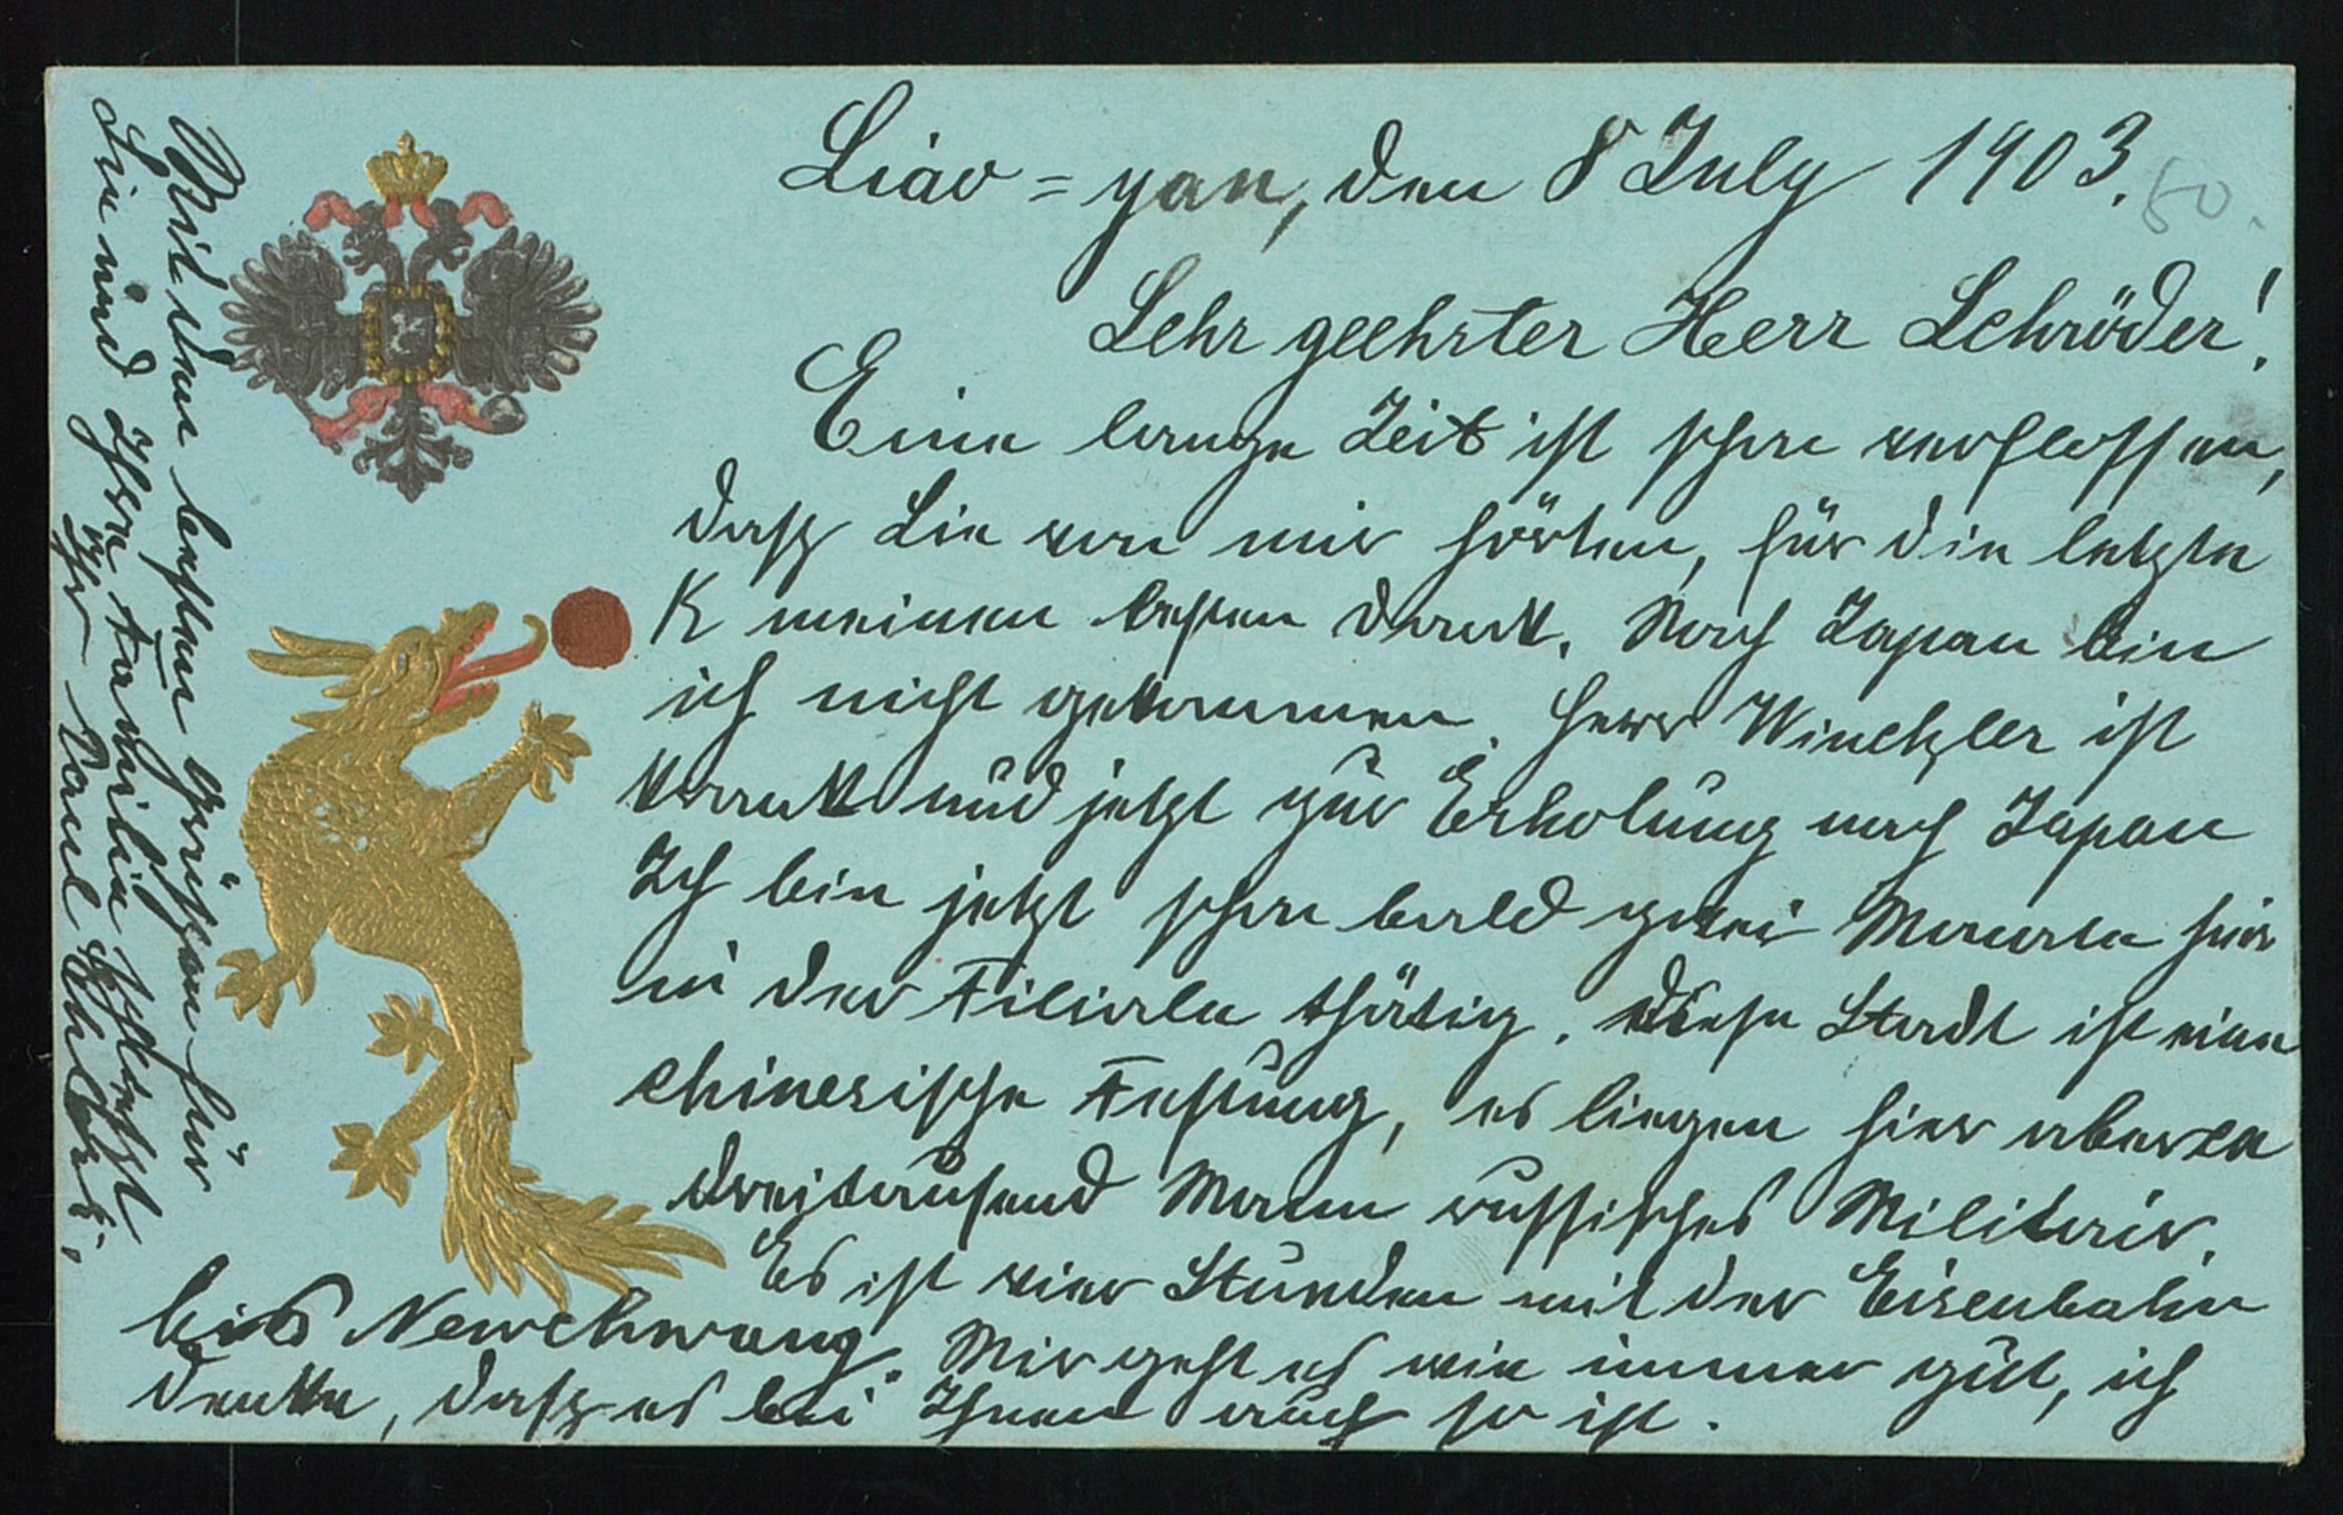 Liao=yan, den 8 July 1903.
50.
Sehr geehrter Herr Schröder!
Eine lange Zeit ist schon verflossen,
dass Sie von mir hörten, für die letzte
K meinen besten Dank. Nach Japan bin
ich nicht gekommen. Herr Winckler ist
krank und jetzt zur Erholung nach Japan
Ich bin jetzt schon bald zwei Monate hier
in der Filiale thätig. Diese Stadt ist eine
chinesische Festung, es liegen hier aber ca
dreitausend Mann russisches Militair.
Es ist vier Stunden mit der Eisenbahn
bis Newchwang. Mir geht es wie immer gut, ich
denke, dass es bei Ihnen auch so ist.
Mit den besten Grüssen für
Sie und Ihre Familie schliesst
Ihr Paul